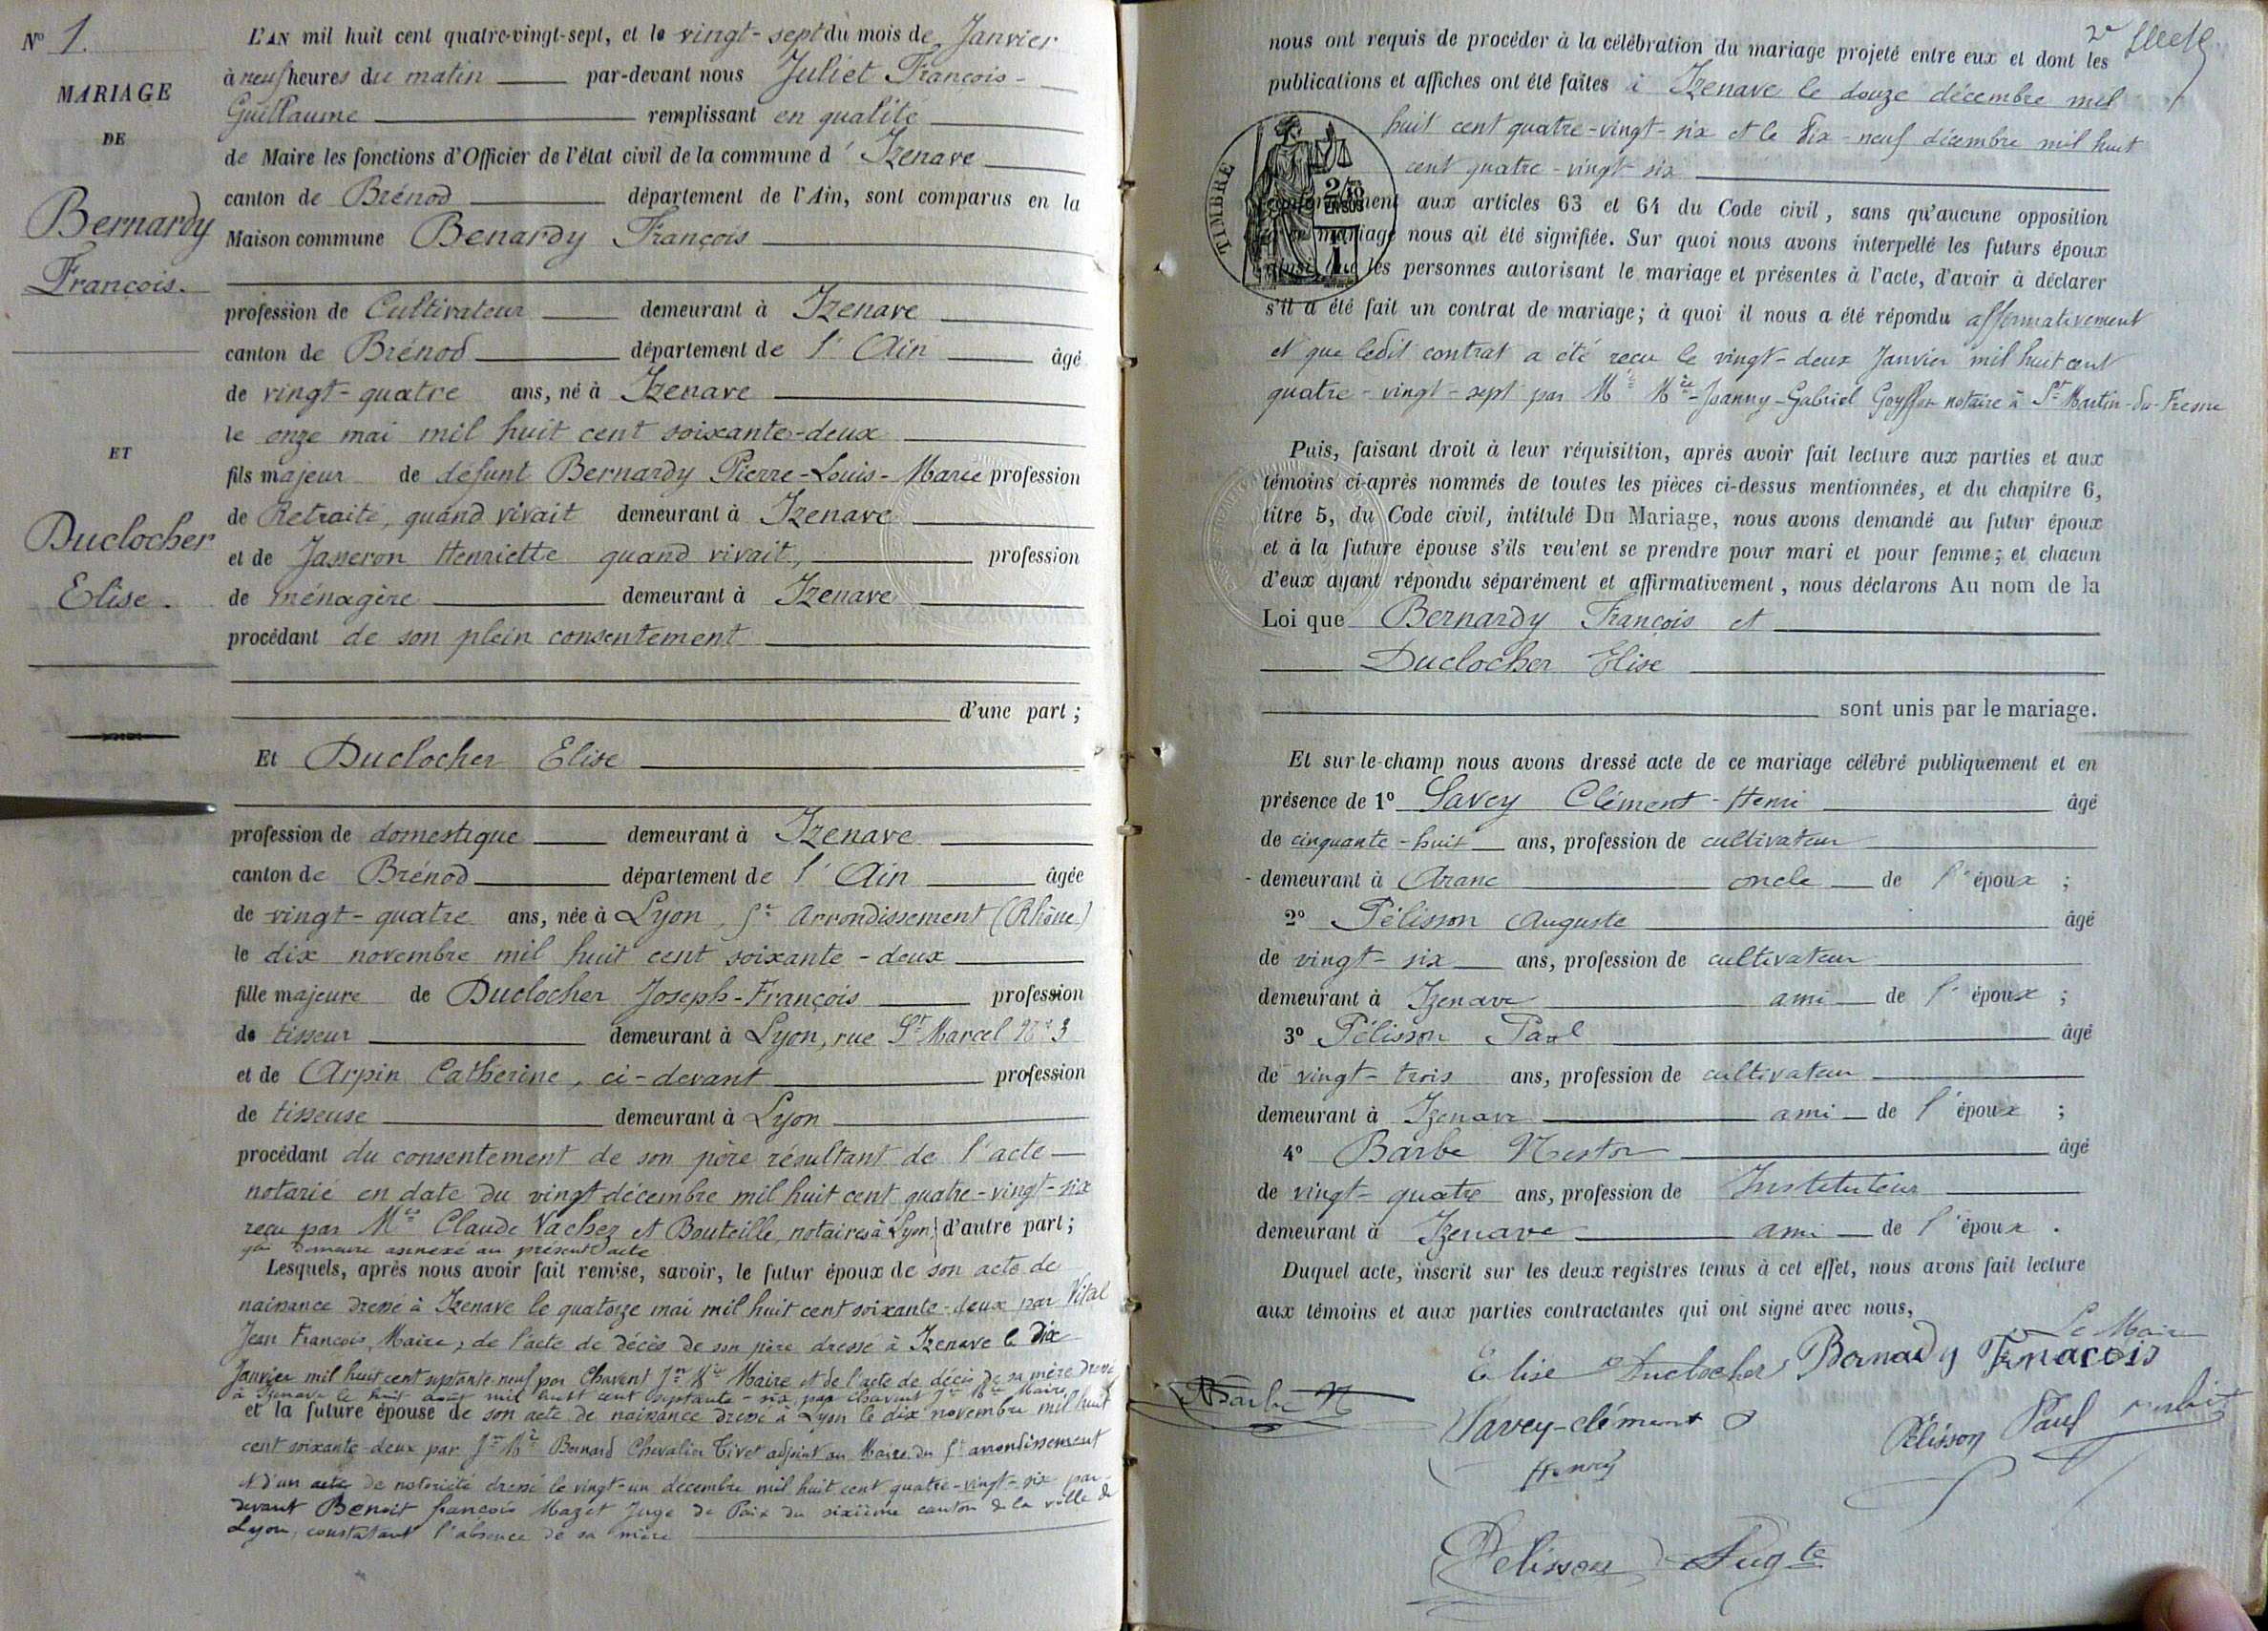 N° 1.
MARIAGE
DE
Bernardy
François.
ET
Duclocher
Elise.
L'AN mil huit cent quatre-vingt-sept, et le vingt-sept du mois de Janvier
à neuf heures du matin par-devant nous Juliet François-
Guillaume remplissant en qualité
de Maire les fonctions d'Officier de l'état civil de la commune d'Izenave
canton de Brénod département de l'Ain, sont comparus en la
Maison commune Benardy François
profession de Cultivateur demeurant à Izenave
canton de Brénod département de l'Ain âgé
de vingt-quatre ans, né à Izenave
le onze mai mil huit cent soixante-deux
fils majeur de défunt Bernardy Pierre-Louis-Marie profession
de Retraité, quand vivait demeurant à Izenave
et de Jasseron Henriette quand vivait, profession
de ménagère demeurant à Izenave
procédant de son plein consentement
d'une part ;
Et Duclocher Elise
profession de domestique demeurant à Izenave
canton de Brénod département de l'Ain âgée
de vingt-quatre ans, née à Lyon, 5e Arrondissement (Rhône)
le dix novembre mil huit cent soixante-deux
fille majeure de Duclocher Joseph-François profession
de tisseur demeurant à Lyon, rue St Marcel N° 3
et de Arpin Catherine, ci-devant profession
de tisseuse demeurant à Lyon
procédant du consentement de son père résultant de l'acte
notarié en date du vingt décembre mil huit cent quatre-vingt-six
reçu par Mes Claude Vachez et Bouteille, notaires à Lyon, d'autre part ;
qui demeure annexé au présent acte
Lesquels, après nous avoir fait remise, savoir, le futur époux de son acte de
naissance dressé à Izenave le quatorze mai mil huit cent soixante-deux par Vital
Jean François, Maire, de l'acte de décès de son père dressé à Izenave le dix
Janvier mil huit cent septante-neuf par Chavent Jn Mie Maire et de l'acte de décès de sa mère dressé
à Izenave le huit août mil huit cent septante-six par Chavent Jn Mie Maire,
et la future épouse de son acte de naissance dressé à Lyon le dix novembre mil huit
cent soixante-deux par Jn Mie Bernard Chevalier adjoint au Maire du 5e arrondissement
et d'un acte de notoriété dressé le vingt-un décembre mil huit cent quatre-vingt-six par
devant Benoit françois Mazet Juge de Paix du sixième canton de la ville de
Lyon, constatant l'absence de sa mère
2e
nous ont requis de procéder à la célébration du mariage projeté entre eux et dont les
publications et affiches ont été faites à Izenave le douze décembre mil
huit cent quatre-vingt-six et le dix-neuf décembre mil huit
cent quatre-vingt-six
TIMBRE
2/10 EN SUS
1
conformément aux articles 63 et 64 du Code civil, sans qu'aucune opposition
à ce mariage nous ait été signifiée. Sur quoi nous avons interpellé les futurs époux
ainsi que les personnes autorisant le mariage et présentes à l'acte, d'avoir à déclarer
s'il a été fait un contrat de mariage ; à quoi il nous a été répondu affirmativement
et que ledit contrat a été reçu le vingt-deux Janvier mil huit cent
quatre-vingt-sept par Me Mie-Joanny-Gabriel notaire à St Martin-du-Fresne
Puis, faisant droit à leur réquisition, après avoir fait lecture aux parties et aux
témoins ci-après nommés de toutes les pièces ci-dessus mentionnées, et du chapitre 6,
titre 5, du Code civil, intitulé Du Mariage, nous avons demandé au futur époux
et à la future épouse s'ils veu'ent se prendre pour mari et pour femme ; et chacun
d'eux ayant répondu séparément et affirmativement, nous déclarons Au nom de la
Loi que Bernardy François et
Duclocher Elise
sont unis par le mariage.
Et sur-le-champ nous avons dressé acte de ce mariage célébré publiquement et en
présence de 1° Savey Clément-Henri âgé
de cinquante-huit ans, profession de cultivateur
demeurant à Aranc oncle de l'époux ;
2° Pélisson Auguste âgé
de vingt-six ans, profession de cultivateur
demeurant à Izenave ami de l'époux ;
3° Pélisson Paul âgé
de vingt-trois ans, profession de cultivateur
demeurant à Izenave ami de l'époux ;
4° Barbe Nestor âgé
de vingt-quatre ans, profession de Instituteur
demeurant à Izenave ami de l'époux.
Duquel acte, inscrit sur les deux registres tenus à cet effet, nous avons fait lecture
aux témoins et aux parties contractantes qui ont signé avec nous,
Le Maire
Elise Duclocher Bernady Frnacois
Barbe N
Savey-clément
Henry
Pélisson Paul
Pelisson Augte